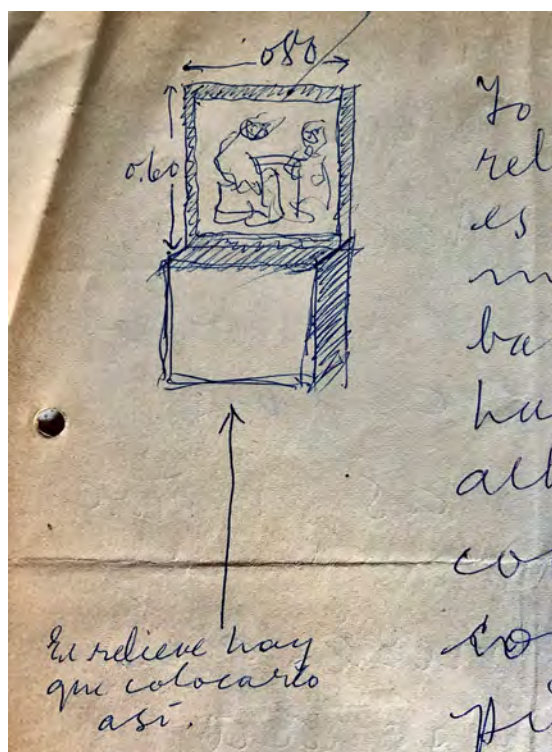 080
0.60
El relieve hay
que colocarlo
así.
Yo
rel
es
ba
ha
co
co